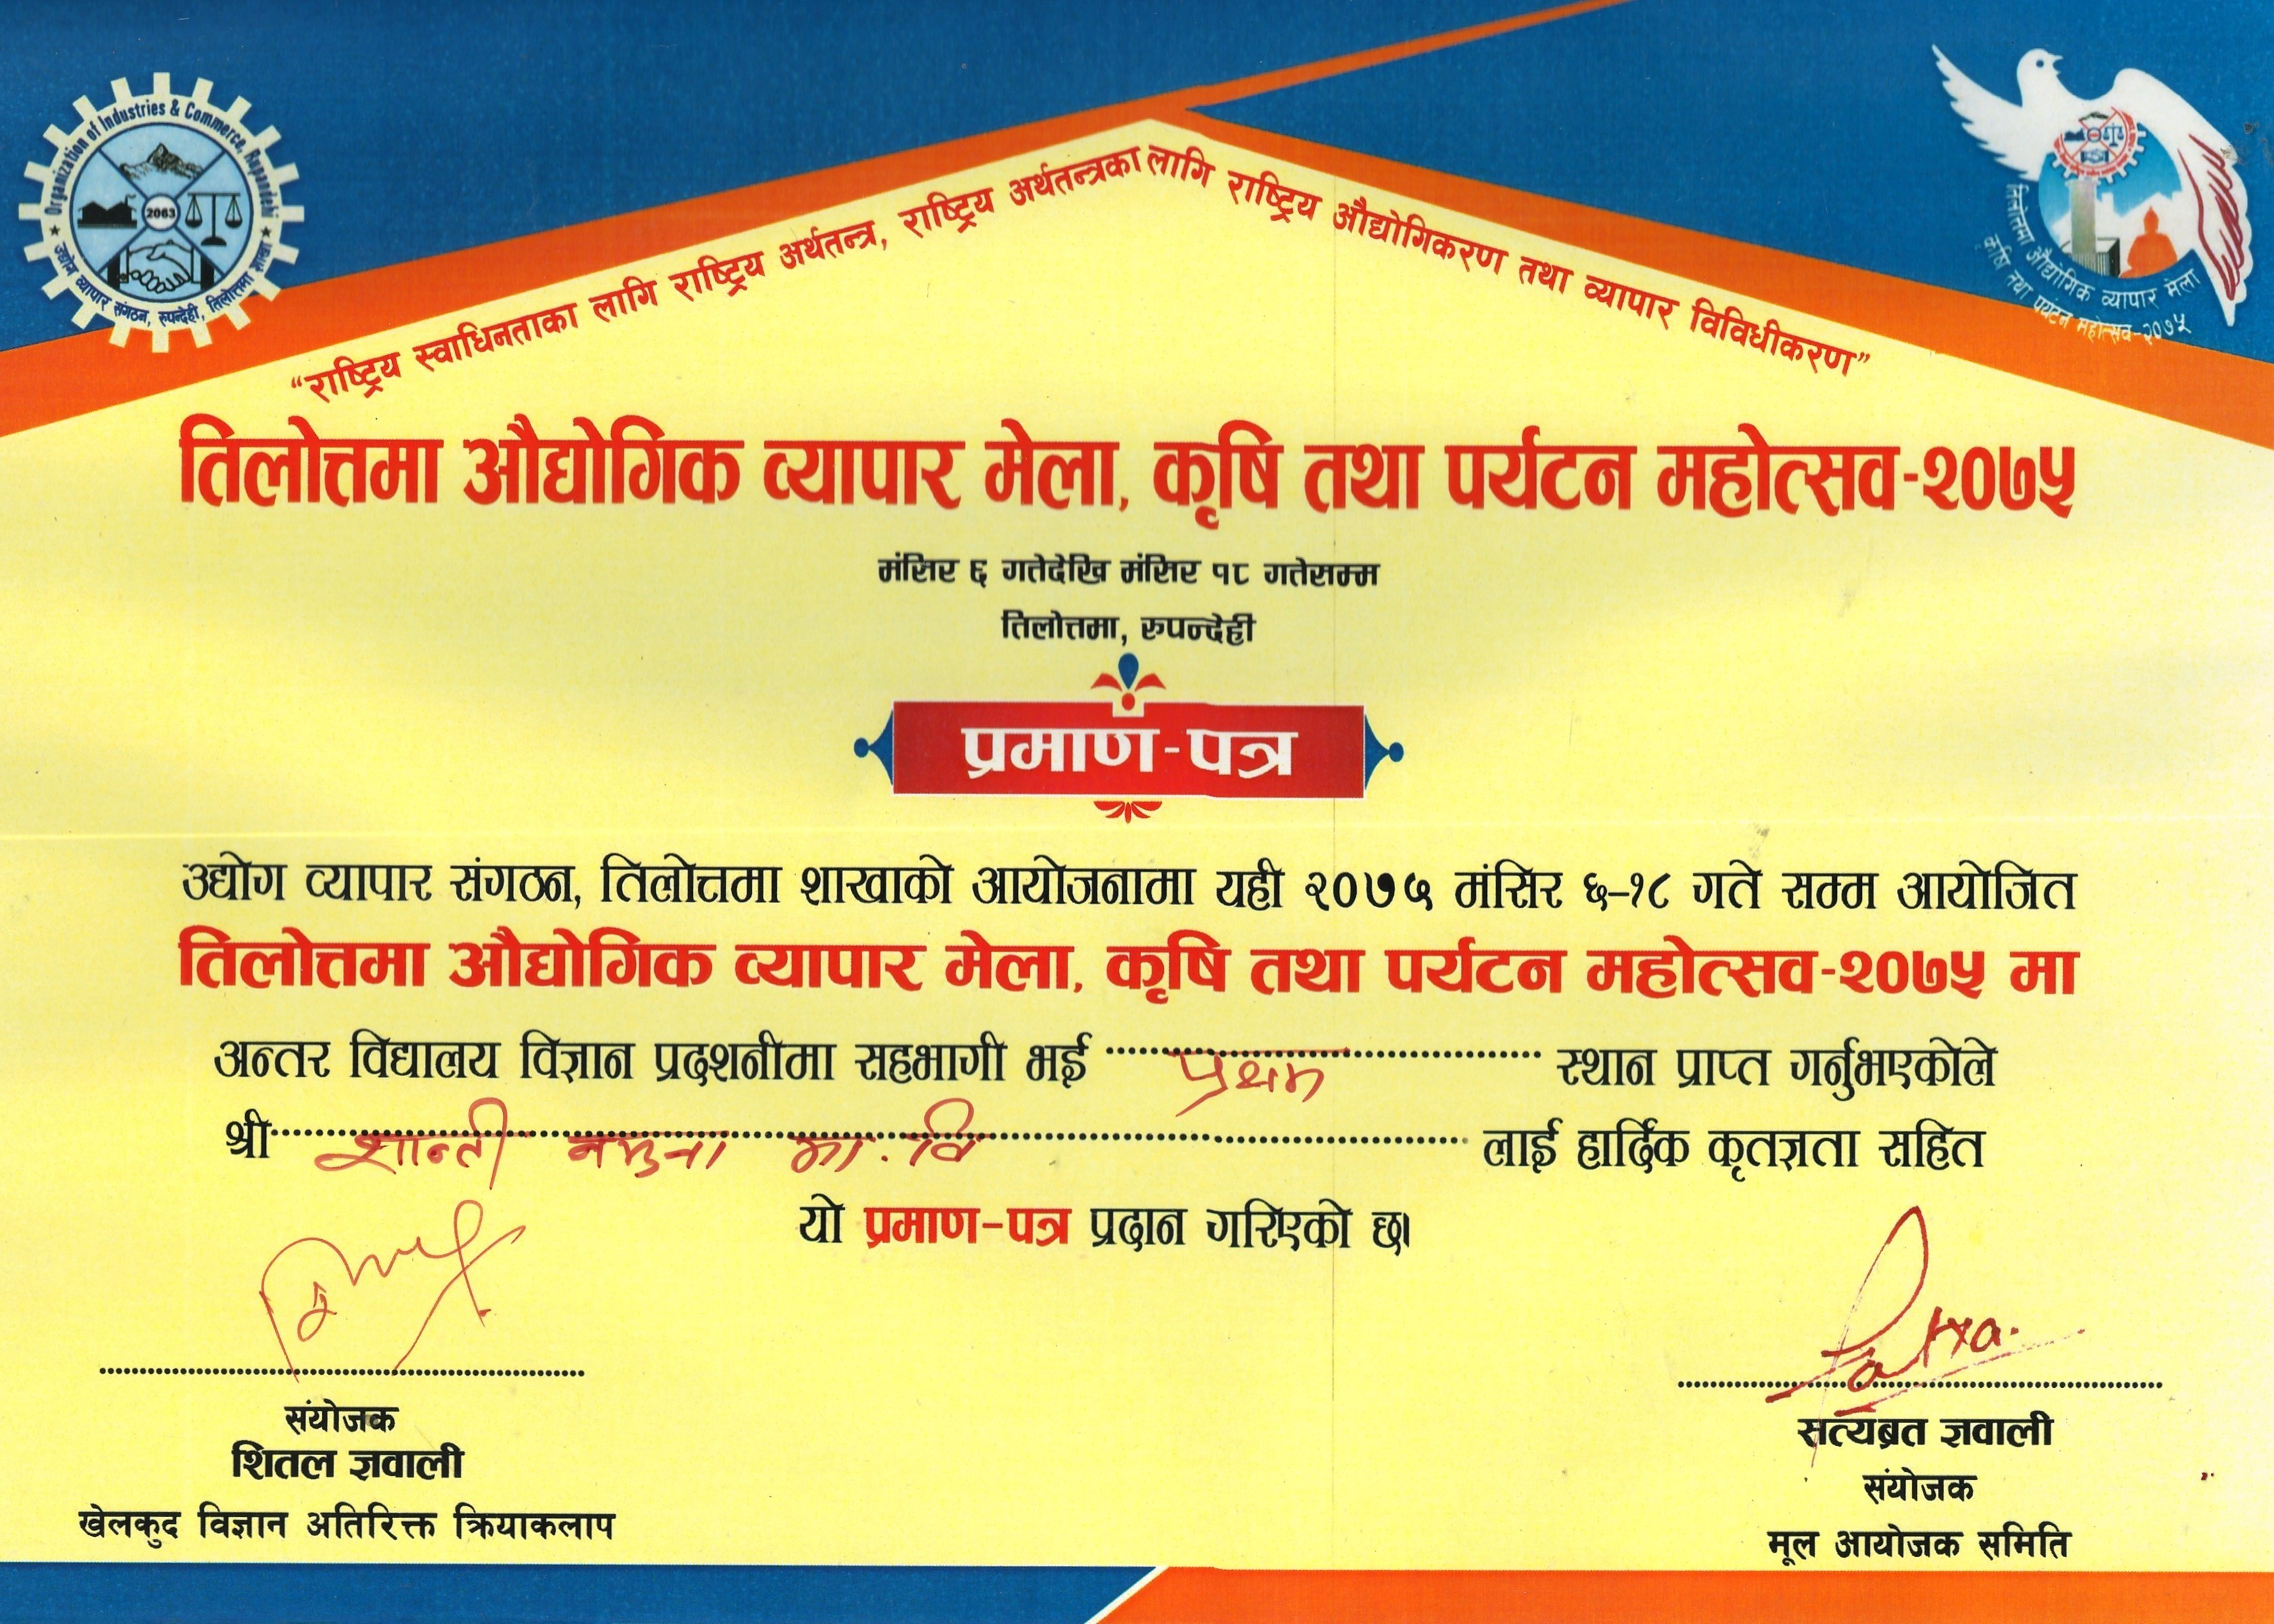 Organization of Industries & Commerce, Rupandehi
2063
उद्योग व्यापार संगठन, रुपन्देही, तिलोत्तमा शाखा
तिलोत्तमा औद्योगिक व्यापार मेला
कृषि तथा पर्यटन महोत्सव-२०७५
“राष्ट्रिय स्वाधिनताका लागि राष्ट्रिय अर्थतन्त्र, राष्ट्रिय अर्थतन्त्रका लागि राष्ट्रिय औद्योगिकरण तथा व्यापार विविधीकरण”
तिलोत्तमा औद्योगिक व्यापार मेला, कृषि तथा पर्यटन महोत्सव-२०७५
मंसिर ६ गतेदेखि मंसिर १८ गतेसम्म
तिलोत्तमा, रुपन्देही
प्रमाण-पत्र
उद्योग व्यापार संगठन, तिलोत्तमा शाखाको आयोजनामा यही २०७५ मंसिर ६–१८ गते सम्म आयोजित
तिलोत्तमा औद्योगिक व्यापार मेला, कृषि तथा पर्यटन महोत्सव-२०७५ मा
अन्तर विद्यालय विज्ञान प्रदशनीमा सहभागी भई प्रथम स्थान प्राप्त गर्नुभएकोले
श्री शान्ती नमुना मा.वि लाई हार्दिक कृतज्ञता सहित
यो प्रमाण-पत्र प्रदान गरिएको छ।
संयोजक
शितल ज्ञवाली
खेलकुद विज्ञान अतिरिक्त क्रियाकलाप
सत्यब्रत ज्ञवाली
संयोजक
मूल आयोजक समिति